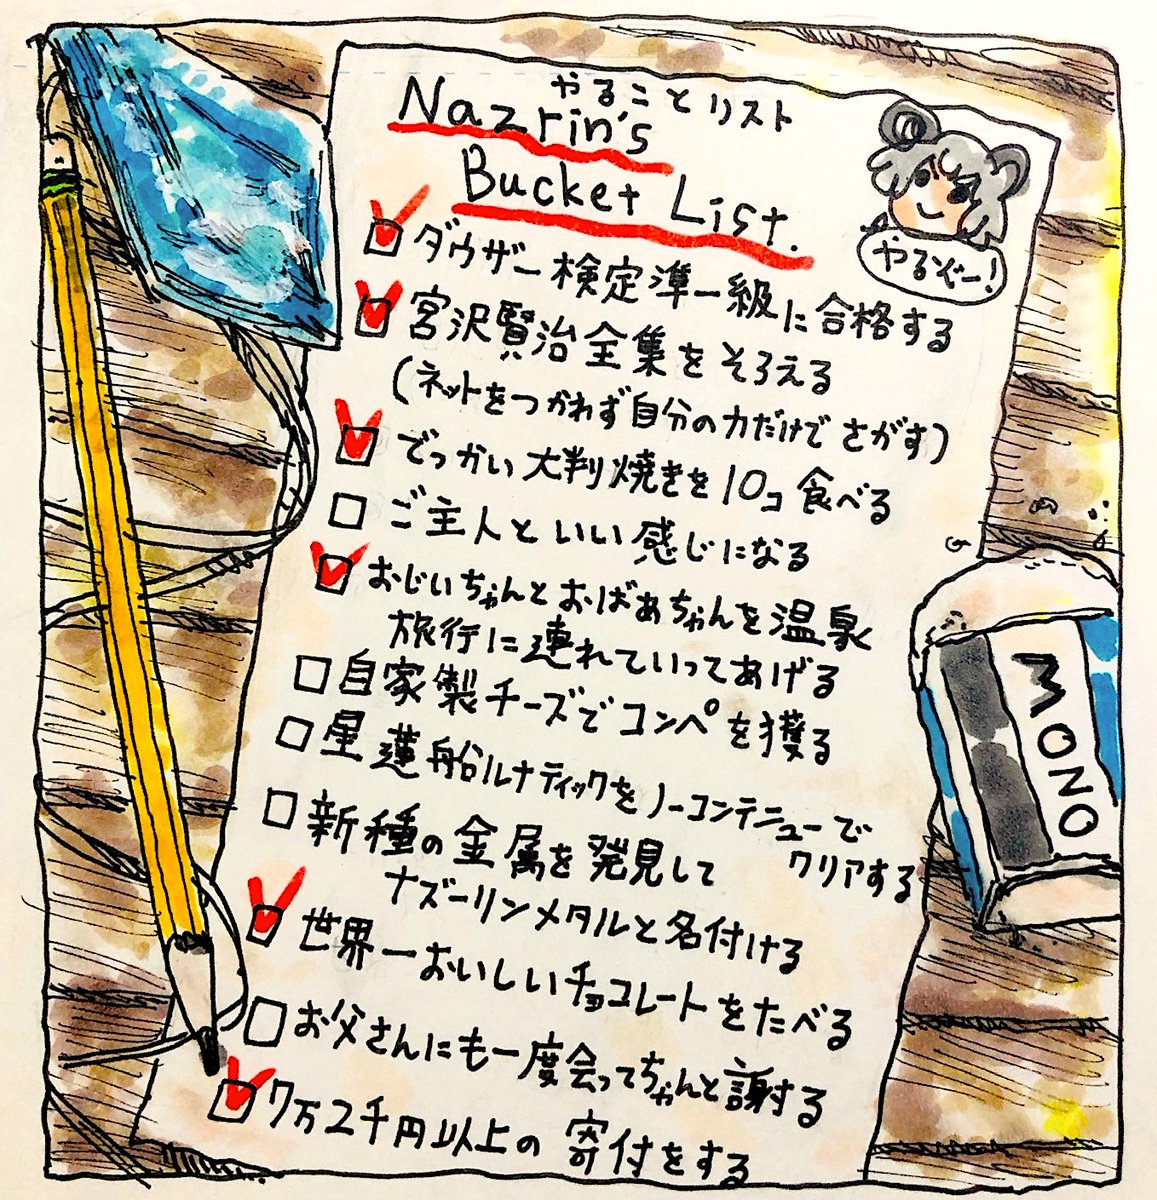 やることリスト
Nazrin's
Bucket List.
やるぞー!
ダウザー検定準一級に合格する
宮沢賢治全集をそろえる
(ネットをつかわず自分の力だけでさがす)
でっかい大判焼きを10コ食べる
ご主人といい感じになる
おじいちゃんとおばあちゃんを温泉
旅行に連れていってあげる
自家製チーズでコンペを獲る
星蓮船ルナティックをノーコンテニューで
クリアする
新種の金属を発見して
ナズーリンメタルと名付ける
世界一おいしいチョコレートをたべる
お父さんにも一度会ってちゃんと謝する
7万2千円以上の寄付をする
MONO